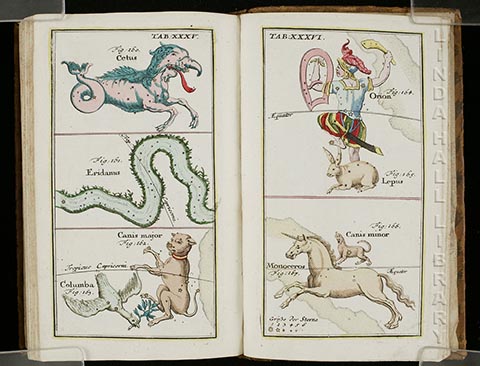 TAB.XXXV.
Fig. 160.
Cetus
Fig. 161.
Eridanus
Canis major
Fig. 162.
Tropicus Capricorni
Columba
Fig. 163.
TAB.XXXVI.
Orion
Fig. 164.
Æquator
Fig. 165.
Lepus
Fig. 166.
Canis minor
Monoceros
Fig. 167.
Æquator
Größe der Sterne
1 2 3 4 5 6
LINDA HALL LIBRARY